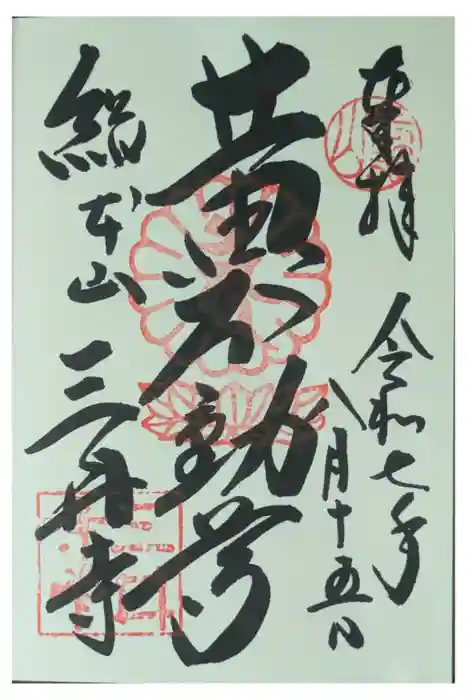 奉拝
令和七年
八月十五日
黄不動尊
総本山
三井寺